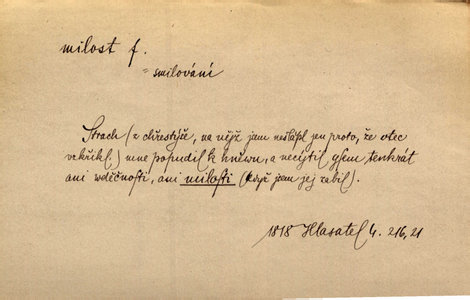 milost f.
= smilování
Strach (z chřestýše, na nějž jsem nešlápl jen proto, že otec
vzkřikl) mne popudil k hněwu, a necýtil gsem tenkrát
ani wděčnosti, ani milosti (když jsem jej zabil).
1818 Hlasatel 4. 216,21